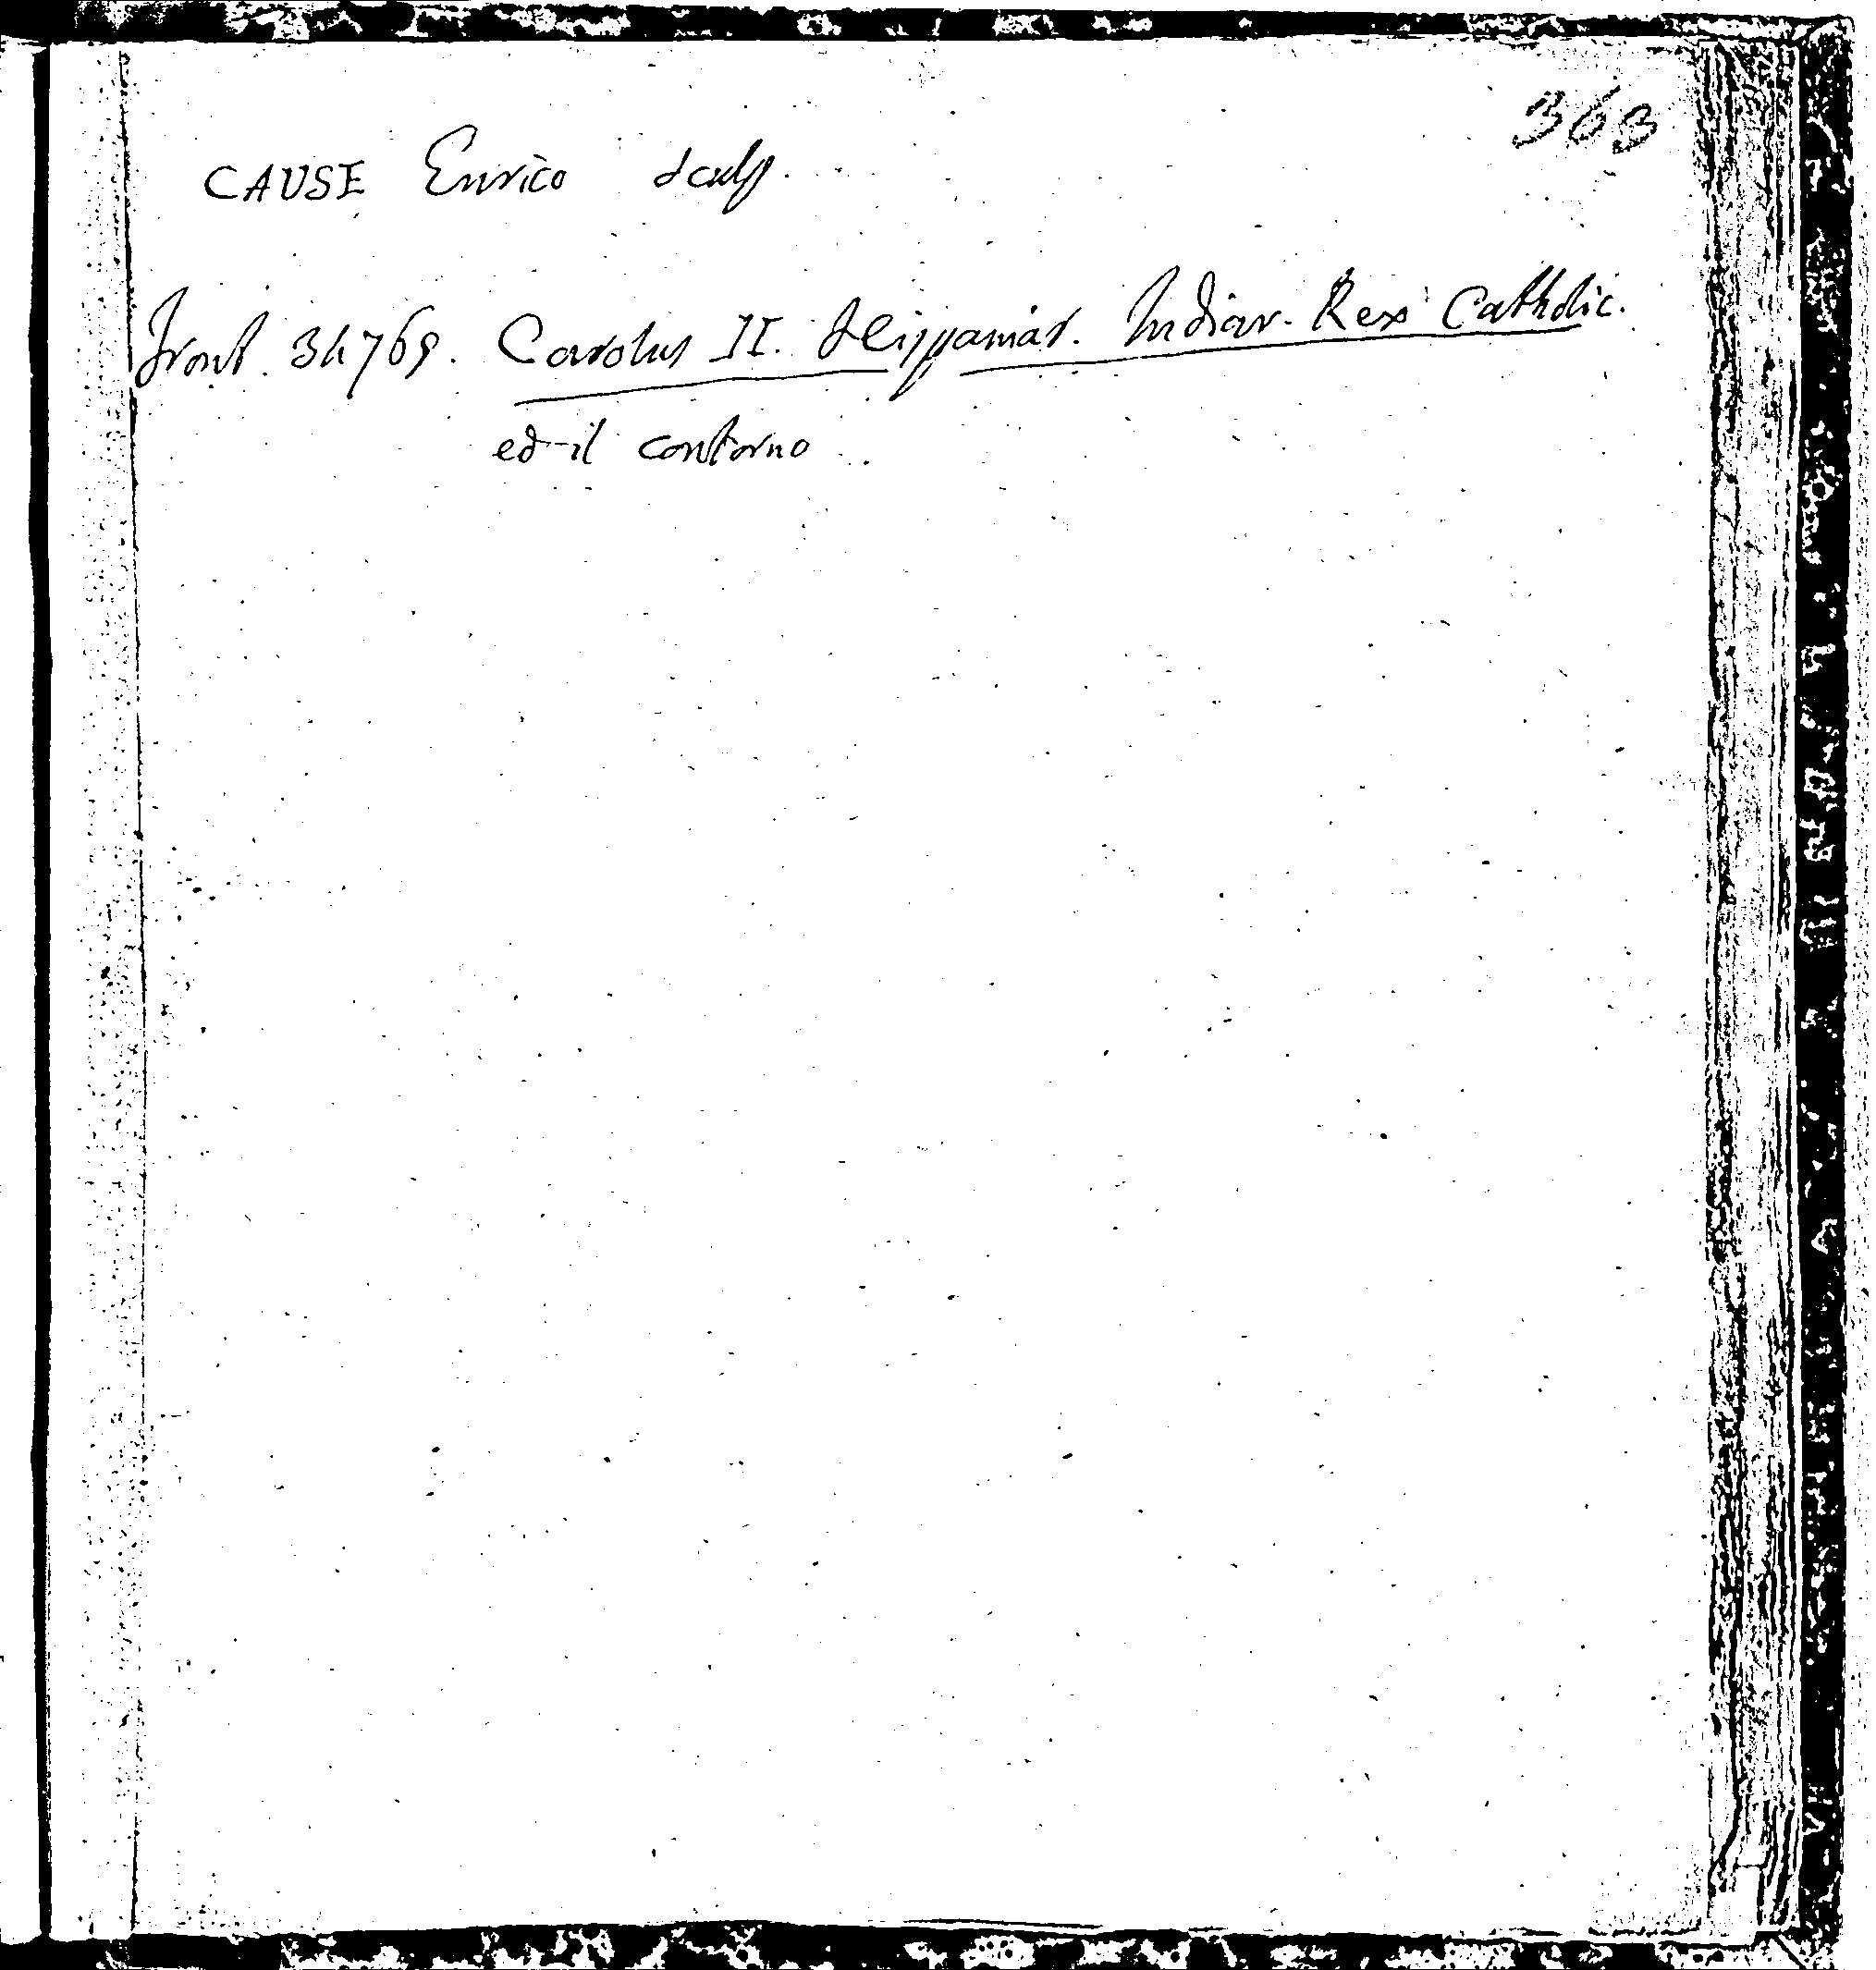 363
CAUSE Enrico sculp.
Front. 34769. Carolus II. Hispaniar. Indiar. Rex Catholic.
ed il contorno